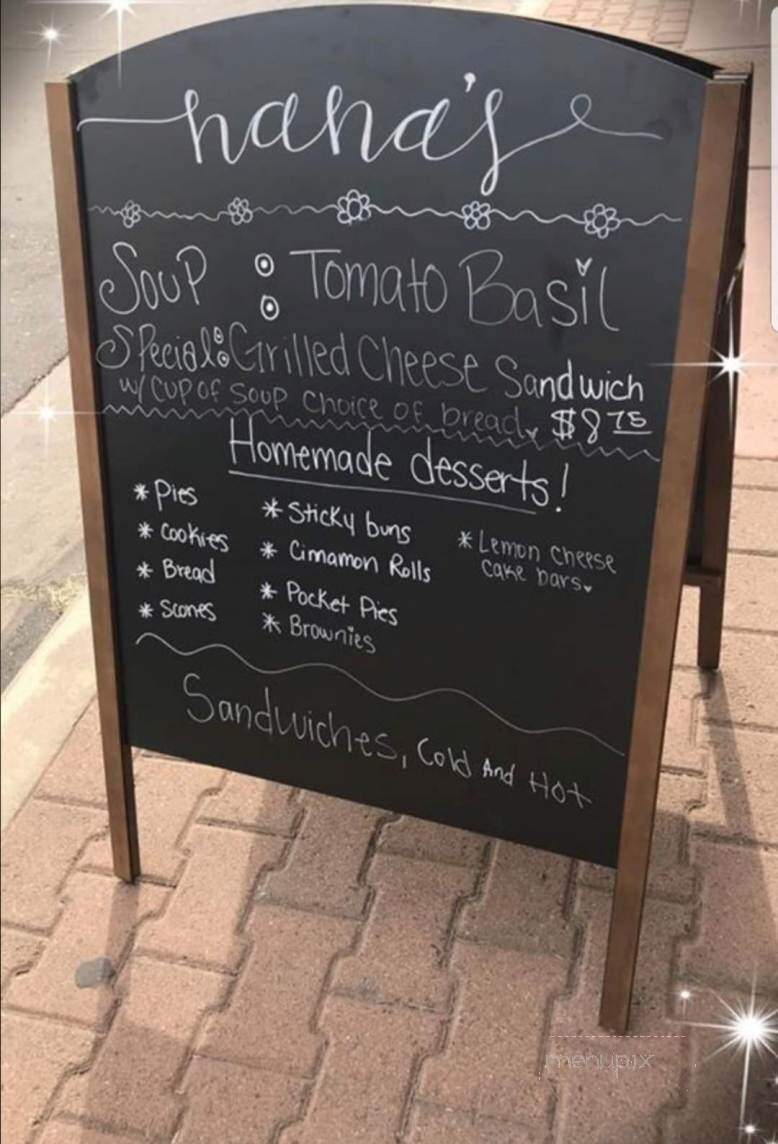 nana's
Soup : Tomato Basil
Special: Grilled Cheese Sandwich
w/ cup of soup choice of bread, $8 75
Homemade desserts!
* Pies
* Cookies
* Bread
* Scones
* Sticky buns
* Cinnamon Rolls
* Pocket Pies
* Brownies
* Lemon Cheese
cake bars
Sandwiches, Cold And Hot
menupix